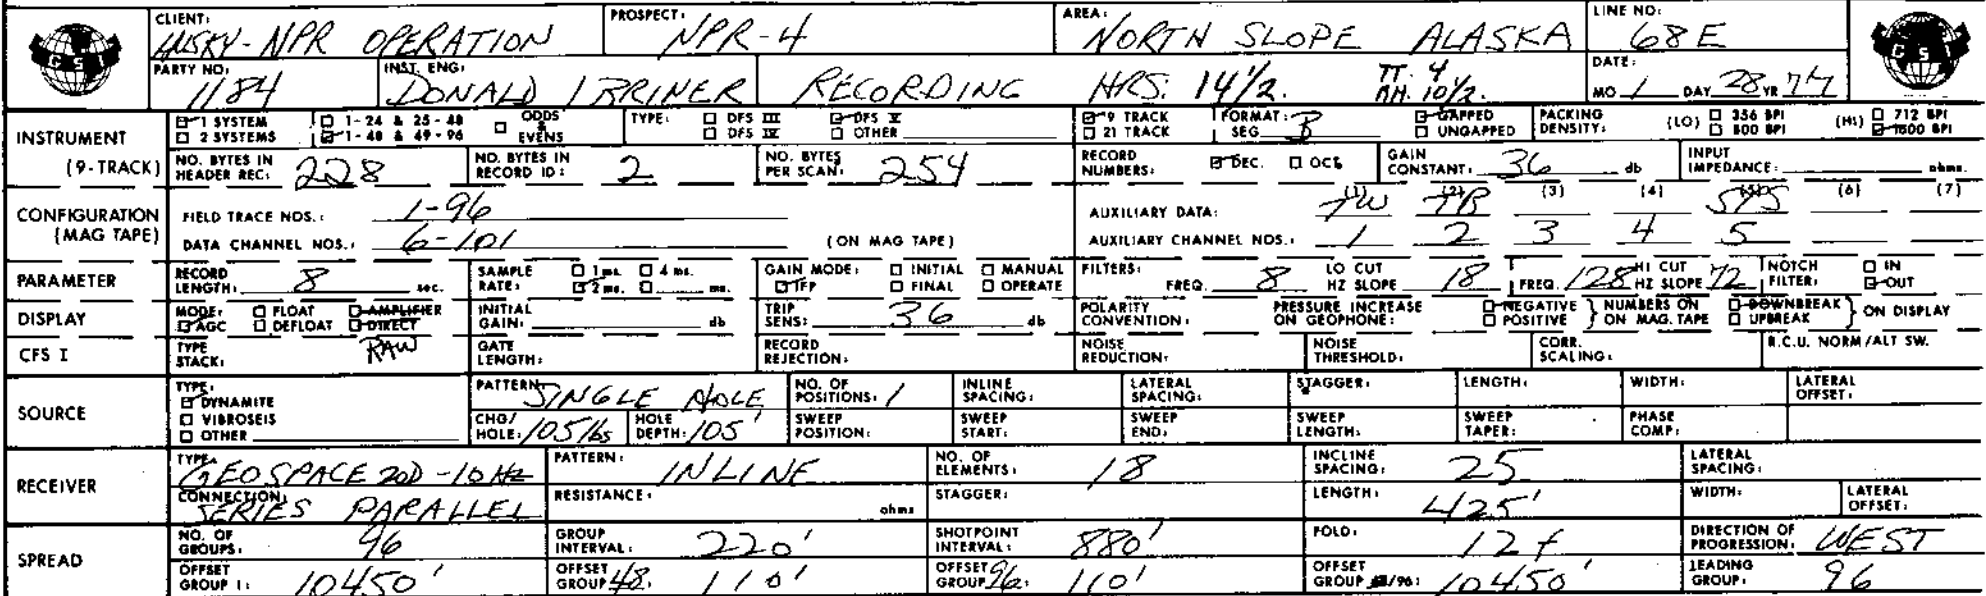 CLIENT: HUSKY-NPR OPERATION PROSPECT: NPR-4 AREA: NORTH SLOPE ALASKA LINE NO: 68E
GSI GSI
PARTY NO: 1184 INST. ENG: DONALD I BRINER RECORDING HRS: 14 1/2. TT. 4 RH. 10 1/2. DATE: MO 1 DAY 28 YR 77
INSTRUMENT (9-TRACK)
1 SYSTEM 1-24 & 25-48 ODDS & EVENS TYPE: DFS III DFS V 9 TRACK FORMAT: SEG B GAPPED PACKING DENSITY: (LO) 356 BPI (HI) 712 BPI
2 SYSTEMS 1-48 & 49-96 DFS IV OTHER 21 TRACK UNGAPPED 800 BPI 1600 BPI
NO. BYTES IN HEADER REC: 228 NO. BYTES IN RECORD ID: 2 NO. BYTES PER SCAN: 254 RECORD NUMBERS: DEC. OCT GAIN CONSTANT: 36 db INPUT IMPEDANCE: ohms.
CONFIGURATION (MAG TAPE)
FIELD TRACE NOS.: 1-96 AUXILIARY DATA: (1) TW (2) TB (3) (4) (5) SYS (6) (7)
DATA CHANNEL NOS.: 6-101 (ON MAG TAPE) AUXILIARY CHANNEL NOS.: 1 2 3 4 5
PARAMETER RECORD LENGTH: 8 sec. SAMPLE RATE: 1 ms. 4 ms. 2 ms. ms. GAIN MODE: INITIAL MANUAL IFP FINAL OPERATE FILTERS: FREQ. 8 LO CUT HZ SLOPE 18 FREQ. 128 HI CUT HZ SLOPE 72 NOTCH FILTER: IN OUT
DISPLAY MODE: FLOAT AMPLIFIER AGC DEFLOAT DIRECT INITIAL GAIN: db TRIP SENS: 36 db POLARITY CONVENTION: PRESSURE INCREASE ON GEOPHONE: NEGATIVE POSITIVE NUMBERS ON ON MAG. TAPE DOWNBREAK UPBREAK ON DISPLAY
CFS I TYPE STACK: RAW GATE LENGTH: RECORD REJECTION: NOISE REDUCTION: NOISE THRESHOLD: CORR. SCALING: R.C.U. NORM/ALT SW.
SOURCE TYPE: DYNAMITE VIBROSEIS OTHER
PATTERN: SINGLE HOLE NO. OF POSITIONS: 1 INLINE SPACING: LATERAL SPACING: STAGGER: LENGTH: WIDTH: LATERAL OFFSET:
CHG/HOLE: 105 lbs HOLE DEPTH: 105' SWEEP POSITION: SWEEP START: SWEEP END: SWEEP LENGTH: SWEEP TAPER: PHASE COMP:
RECEIVER TYPE: GEOSPACE 20D-10 Hz PATTERN: INLINE NO. OF ELEMENTS: 18 INCLINE SPACING: 25 LATERAL SPACING:
CONNECTION: SERIES PARALLEL RESISTANCE: ohms STAGGER: LENGTH: 425' WIDTH: LATERAL OFFSET:
SPREAD NO. OF GROUPS: 96 GROUP INTERVAL: 220' SHOTPOINT INTERVAL: 880' FOLD: 12f DIRECTION OF PROGRESSION: WEST
OFFSET GROUP 1: 10450' OFFSET GROUP 48: 110' OFFSET GROUP 96: 110' OFFSET GROUP /96: 10450' LEADING GROUP: 96